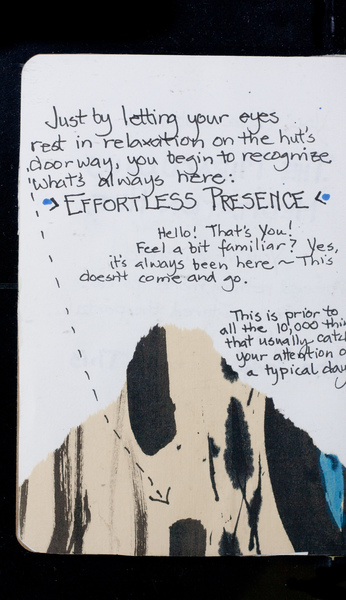 Just by letting your eyes
rest in relaxation on the hut's
doorway, you begin to recognize
what's always here:
EFFORTLESS PRESENCE
Hello! That's You!
Feel a bit familiar? Yes,
it's always been here ~ This
doesn't come and go.
This is prior to
all the 10,000
that usually
your attention
a typical